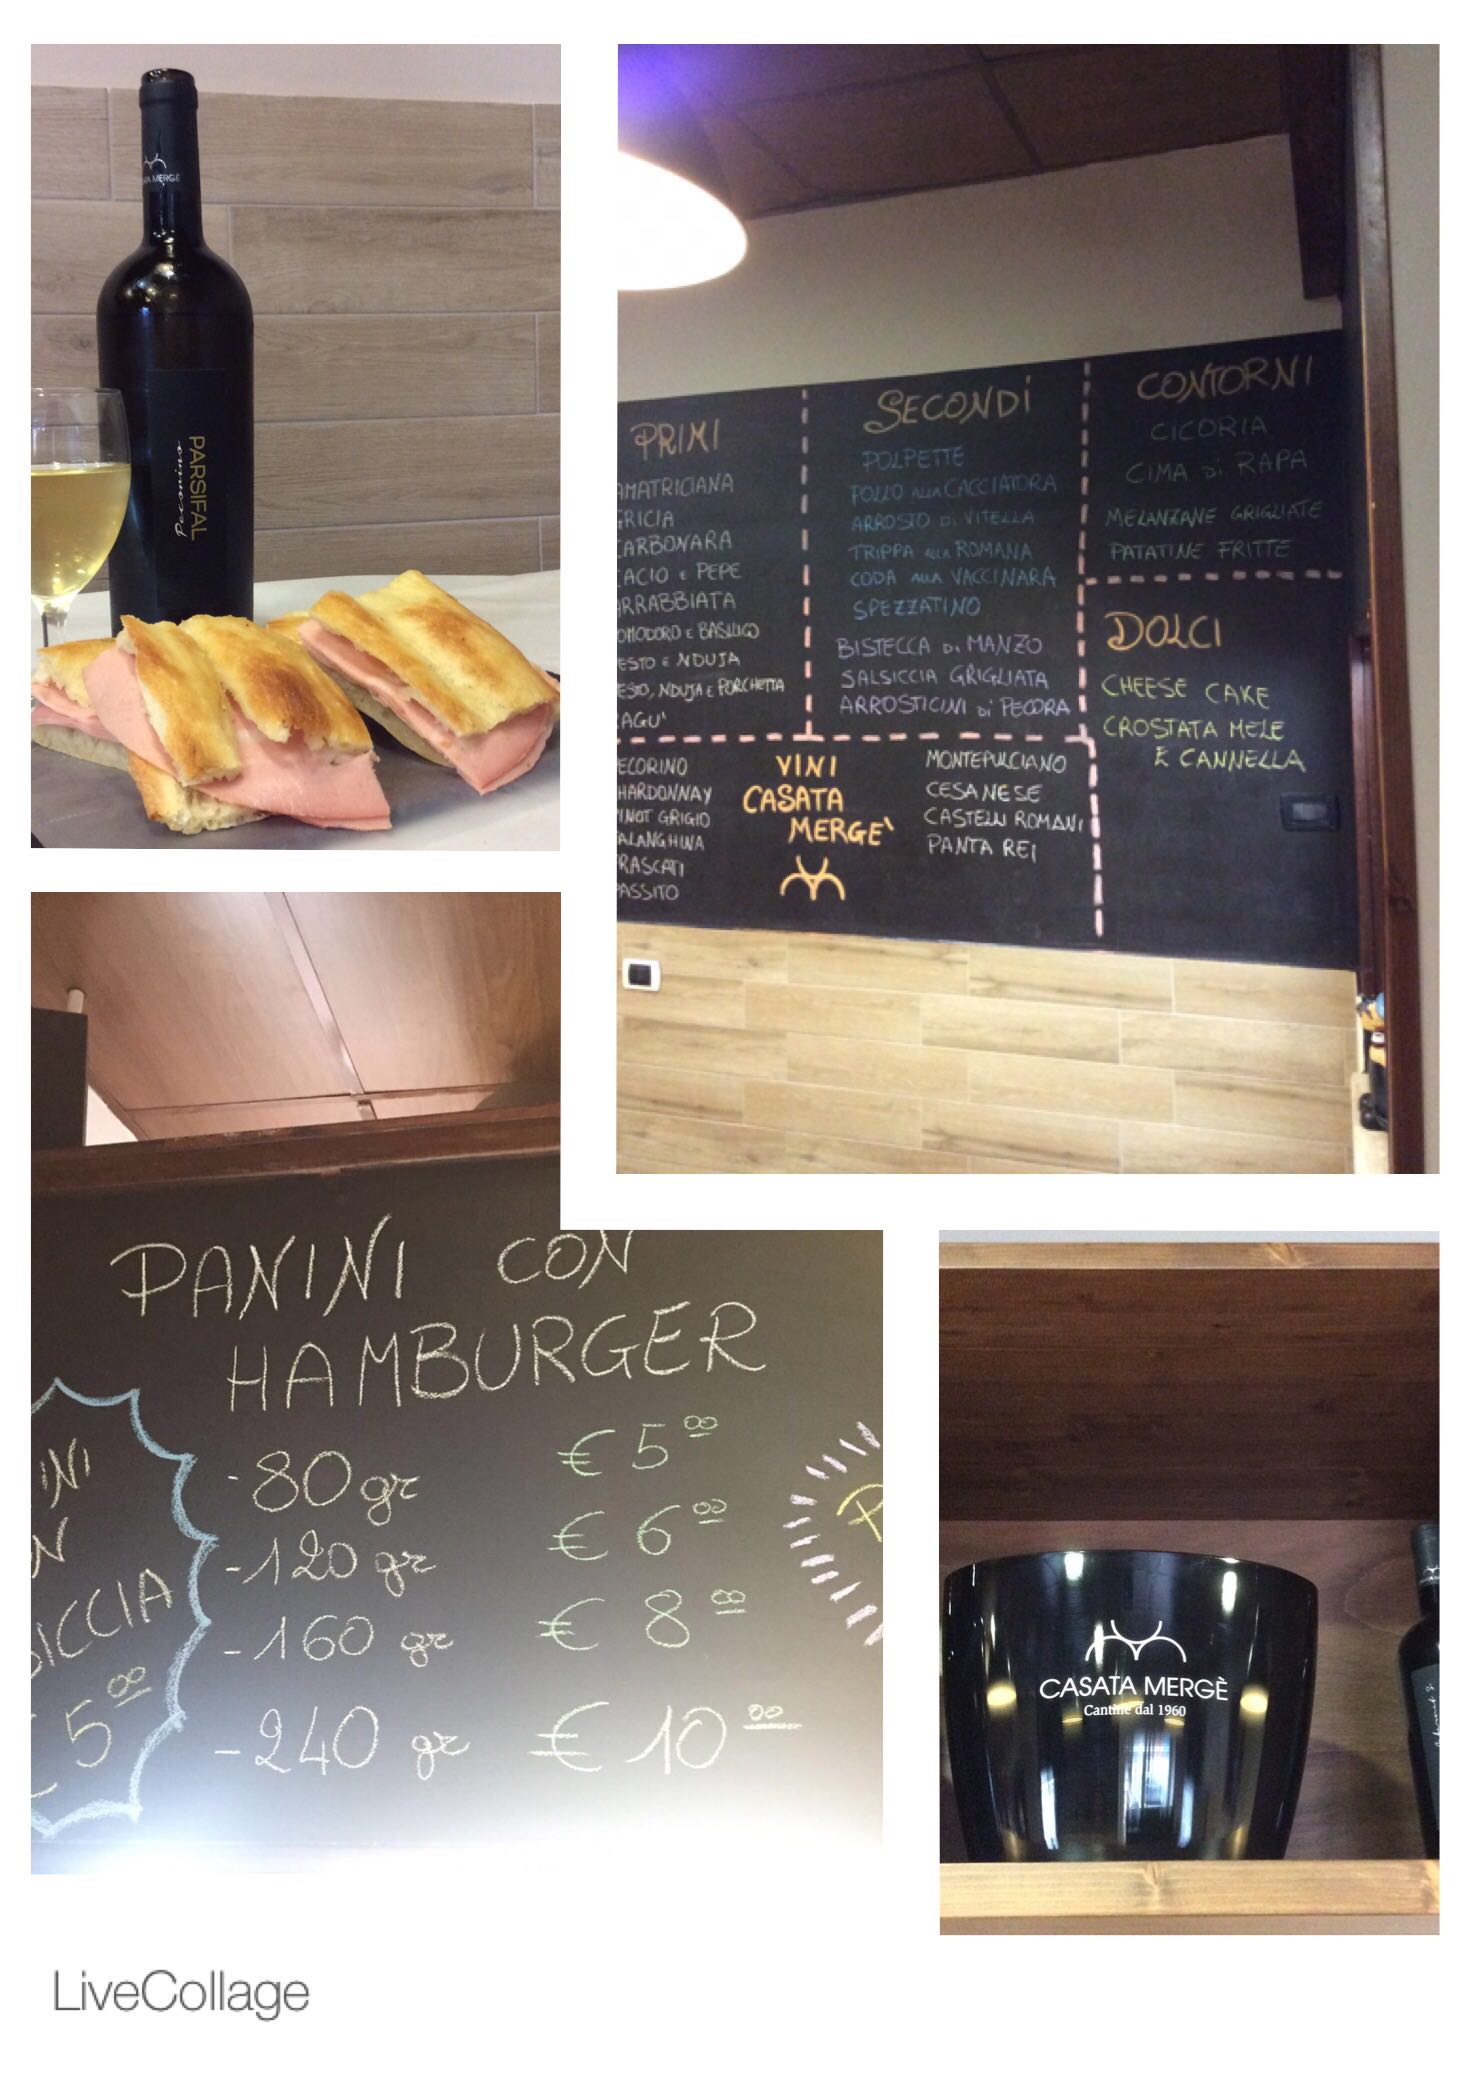 CASATA MERGÈ
PARSIFAL
Pecorino
PRIMI
AMATRICIANA
GRICIA
CARBONARA
CACIO E PEPE
ARRABBIATA
POMODORO E BASILICO
PESTO E NDUJA
PESTO, NDUJA E PORCHETTA
RAGU'
SECONDI
POLPETTE
POLLO ALLA CACCIATORA
ARROSTO DI VITELLA
TRIPPA ALLA ROMANA
CODA ALLA VACCINARA
SPEZZATINO
BISTECCA DI MANZO
SALSICCIA GRIGLIATA
ARROSTICINI DI PECORA
CONTORNI
CICORIA
CIMA DI RAPA
MELANZANE GRIGLIATE
PATATINE FRITTE
DOLCI
CHEESE CAKE
CROSTATA MELE
E CANNELLA
PECORINO
CHARDONNAY
PINOT GRIGIO
FALANGHINA
FRASCATI
PASSITO
VINI
CASATA
MERGE'
MONTEPULCIANO
CESANESE
CASTELLI ROMANI
PANTA REI
PANINI CON
HAMBURGER
-80 gr € 5,00
-120 gr € 6,00
-160 gr € 8,00
-240 gr € 10,00
INI
N
SICCIA
€ 5,00
P
CASATA MERGÈ
Cantine dal 1960
LiveCollage